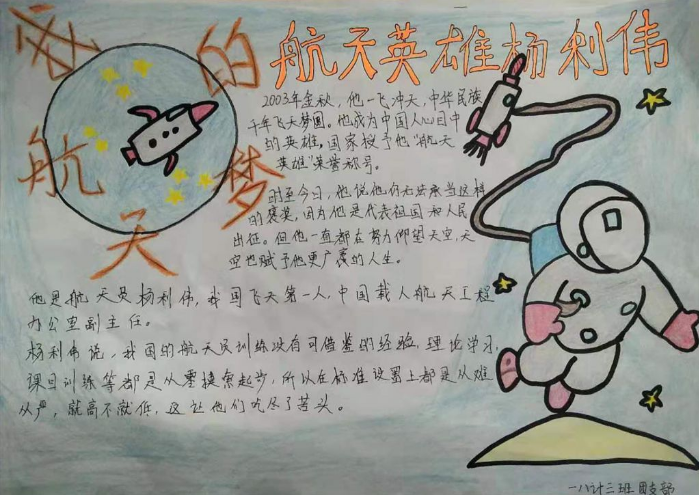 我的航天梦
航天英雄杨利伟
2003年金秋，他一飞冲天，中华民族
千年飞天梦圆。他成为中国人心目中
的英雄，国家授予他"航天
英雄"荣誉称号。
时至今日，他说他仍无法承当这样
的褒奖，因为他是代表祖国和人民
出征。但他一直都在努力仰望天空，天
空也赋予他更广袤的人生。
他是航天员杨利伟，我国飞天第一人，中国载人航天工程
办公室副主任。
杨利伟说，我国的航天员训练没有可借鉴的经验，理论学习，
课目训练等都是从零摸索起步，所以在标准设置上都是从难
从严，就高不就低，这让他们吃尽了苦头。
一八计三班团支部